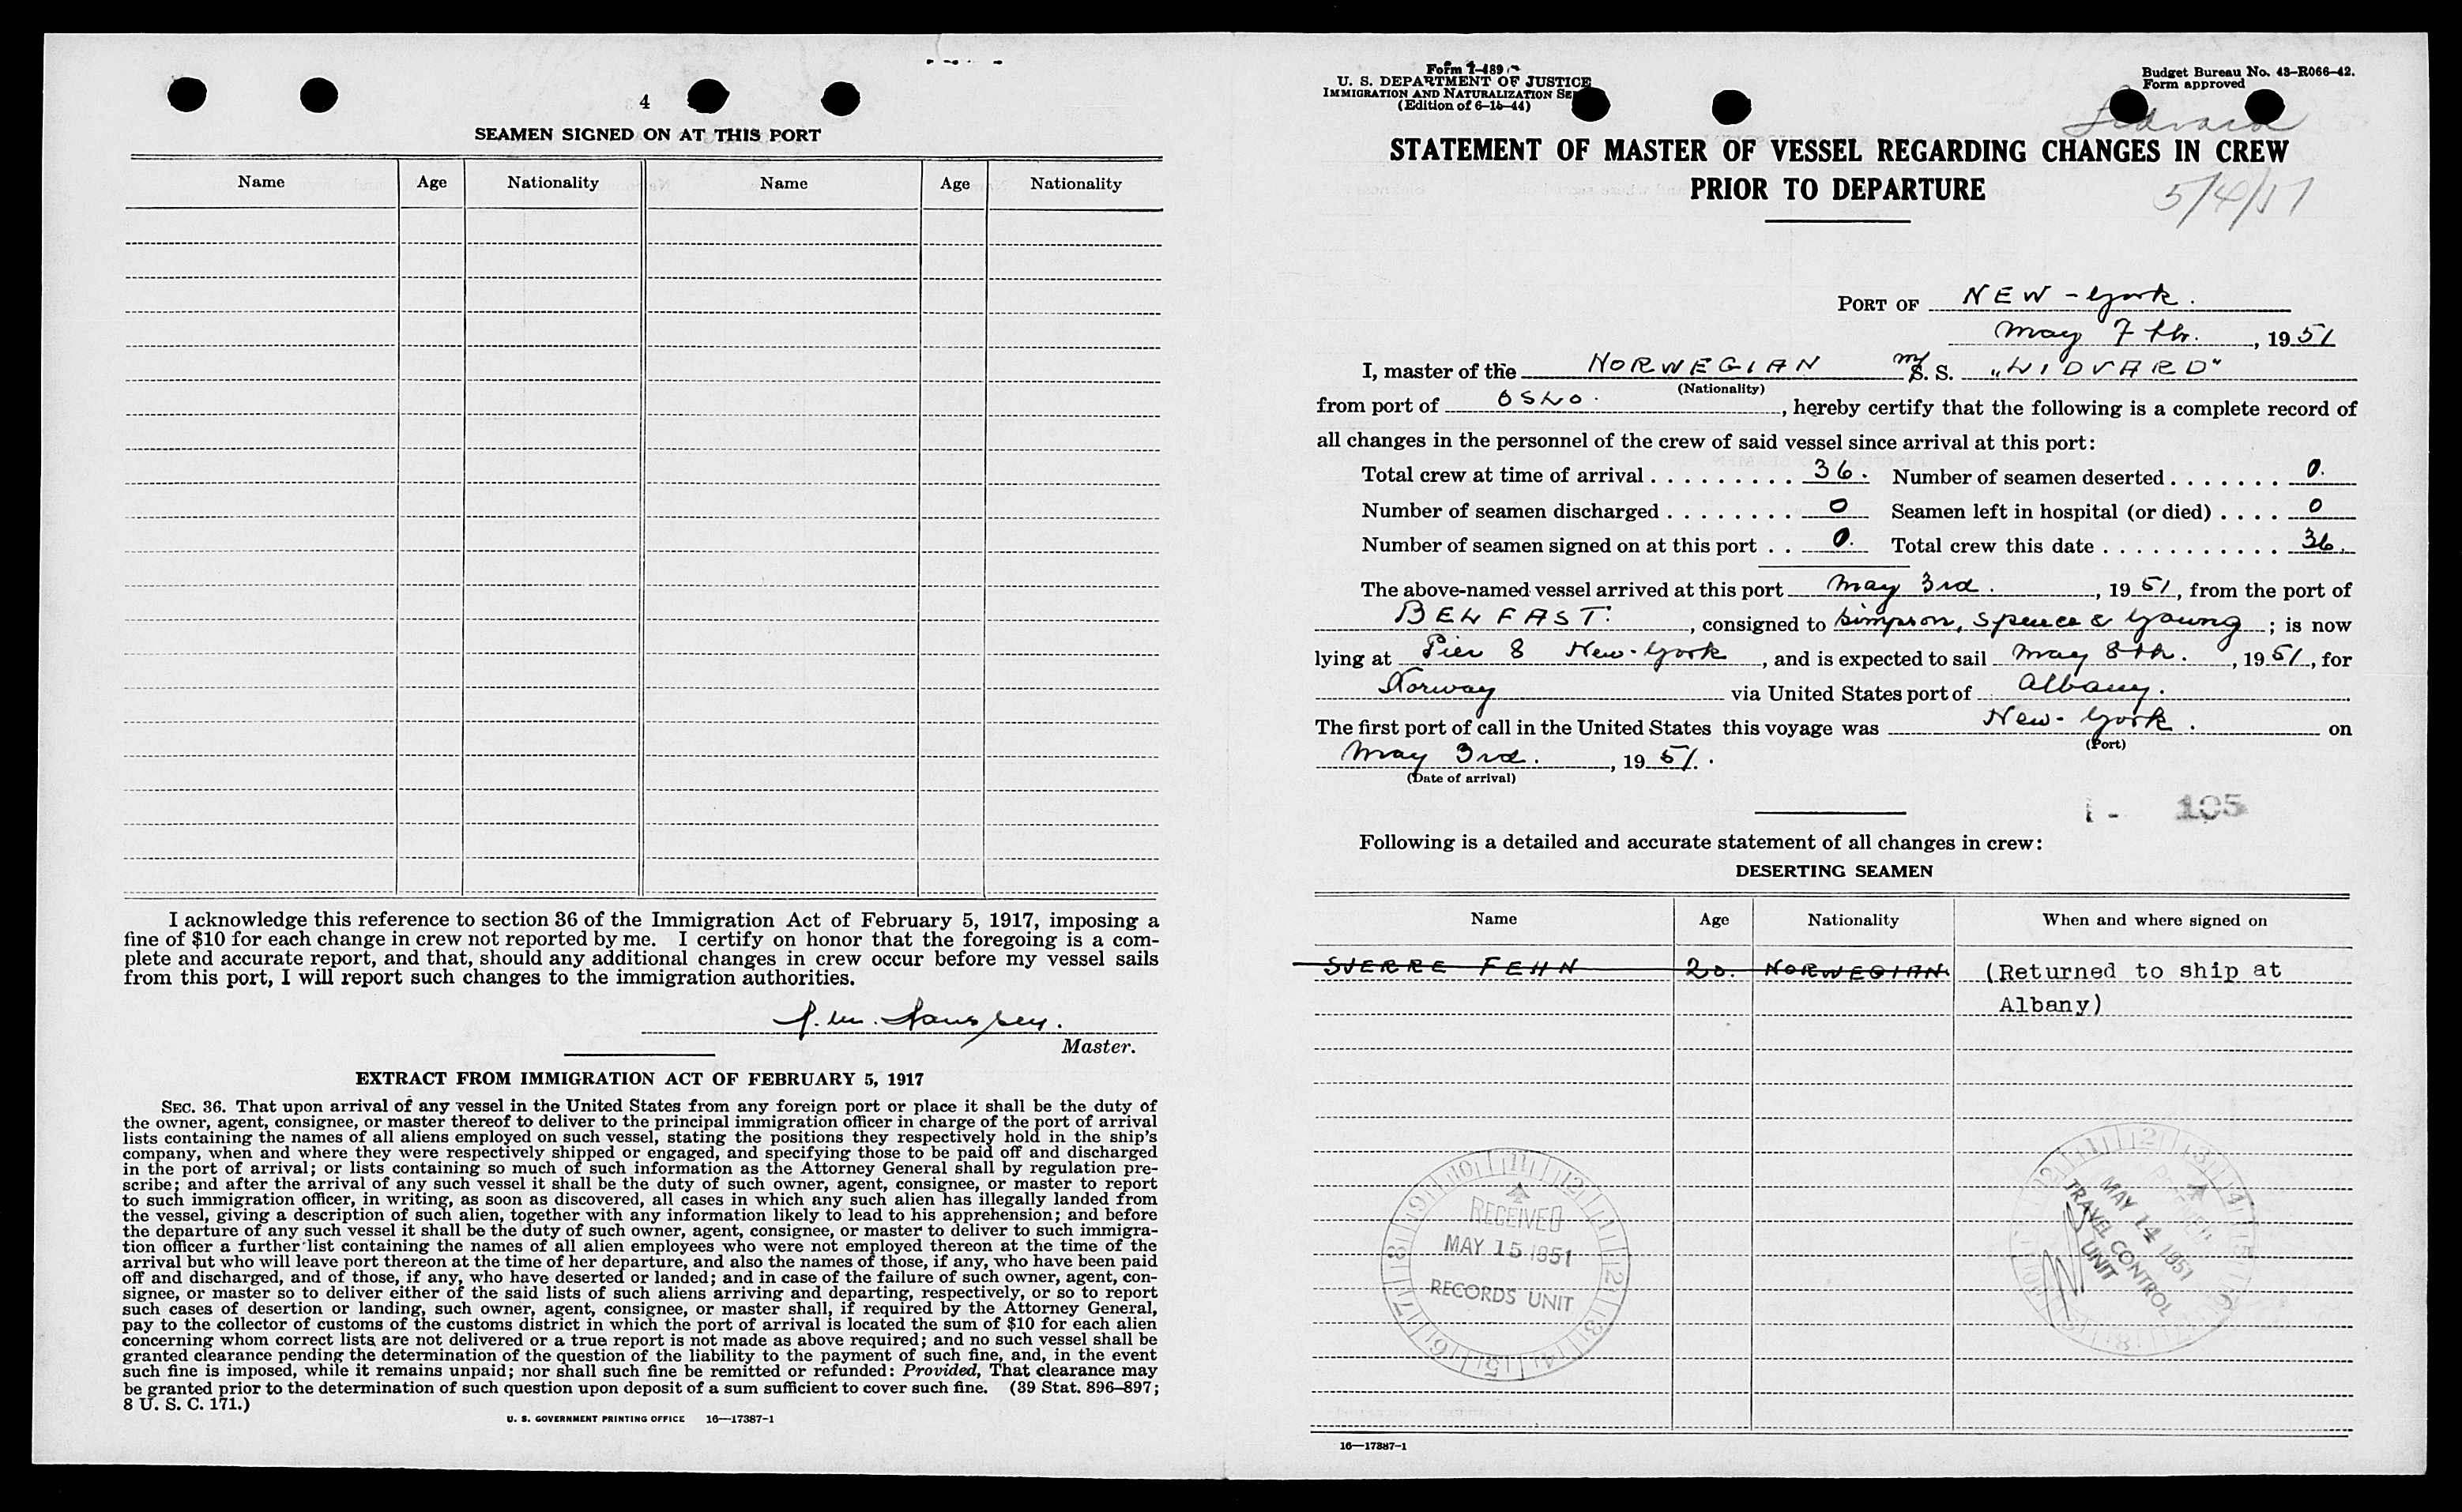 4
SEAMEN SIGNED ON AT THIS PORT
Name Age Nationality Name Age Nationality
I acknowledge this reference to section 36 of the Immigration Act of February 5, 1917, imposing a
fine of $10 for each change in crew not reported by me. I certify on honor that the foregoing is a com-
plete and accurate report, and that, should any additional changes in crew occur before my vessel sails
from this port, I will report such changes to the immigration authorities.
Master.
EXTRACT FROM IMMIGRATION ACT OF FEBRUARY 5, 1917
SEC. 36. That upon arrival of any vessel in the United States from any foreign port or place it shall be the duty of
the owner, agent, consignee, or master thereof to deliver to the principal immigration officer in charge of the port of arrival
lists containing the names of all aliens employed on such vessel, stating the positions they respectively hold in the ship's
company, when and where they were respectively shipped or engaged, and specifying those to be paid off and discharged
in the port of arrival; or lists containing so much of such information as the Attorney General shall by regulation pre-
scribe; and after the arrival of any such vessel it shall be the duty of such owner, agent, consignee, or master to report
to such immigration officer, in writing, as soon as discovered, all cases in which any such alien has illegally landed from
the vessel, giving a description of such alien, together with any information likely to lead to his apprehension; and before
the departure of any such vessel it shall be the duty of such owner, agent, consignee, or master to deliver to such immigra-
tion officer a further list containing the names of all alien employees who were not employed thereon at the time of the
arrival but who will leave port thereon at the time of her departure, and also the names of those, if any, who have been paid
off and discharged, and of those, if any, who have deserted or landed; and in case of the failure of such owner, agent, con-
signee, or master so to deliver either of the said lists of such aliens arriving and departing, respectively, or so to report
such cases of desertion or landing, such owner, agent, consignee, or master shall, if required by the Attorney General,
pay to the collector of customs of the customs district in which the port of arrival is located the sum of $10 for each alien
concerning whom correct lists are not delivered or a true report is not made as above required; and no such vessel shall be
granted clearance pending the determination of the question of the liability to the payment of such fine, and, in the event
such fine is imposed, while it remains unpaid; nor shall such fine be remitted or refunded: Provided, That clearance may
be granted prior to the determination of such question upon deposit of a sum sufficient to cover such fine. (39 Stat. 896–897;
8 U. S. C. 171.)
U. S. GOVERNMENT PRINTING OFFICE 16—17387-1
Form I-489
U. S. DEPARTMENT OF JUSTICE
IMMIGRATION AND NATURALIZATION SE
(Edition of 6-15-44)
Budget Bureau No. 43-R066-42.
Form approved
Lidvard
STATEMENT OF MASTER OF VESSEL REGARDING CHANGES IN CREW
PRIOR TO DEPARTURE
5/4/51
PORT OF NEW-York.
May 7th., 1951
I, master of the NORWEGIAN M/S. S. "LIDVARD"
(Nationality)
from port of OSLO., hereby certify that the following is a complete record of
all changes in the personnel of the crew of said vessel since arrival at this port:
Total crew at time of arrival . . . . . . . . . 36. Number of seamen deserted . . . . . . . 0.
Number of seamen discharged . . . . . . . . 0 Seamen left in hospital (or died) . . . . 0
Number of seamen signed on at this port . . 0. Total crew this date . . . . . . . . . . . 36.
The above-named vessel arrived at this port May 3rd., 1951, from the port of
BELFAST., consigned to Simpson, Spence & Young; is now
lying at Pier 8 New-York, and is expected to sail May 8th., 1951, for
Norway via United States port of Albany.
The first port of call in the United States this voyage was New-York. on
(Port)
May 3rd., 1951.
(Date of arrival)
1- 105
Following is a detailed and accurate statement of all changes in crew:
DESERTING SEAMEN
Name Age Nationality When and where signed on
SVERRE FEHN 20. NORWEGIAN. (Returned to ship at
Albany)
RECEIVED
MAY 15 1951
RECORDS UNIT
MAY 14 1951
TRAVEL CONTROL
UNIT
16—17387-1